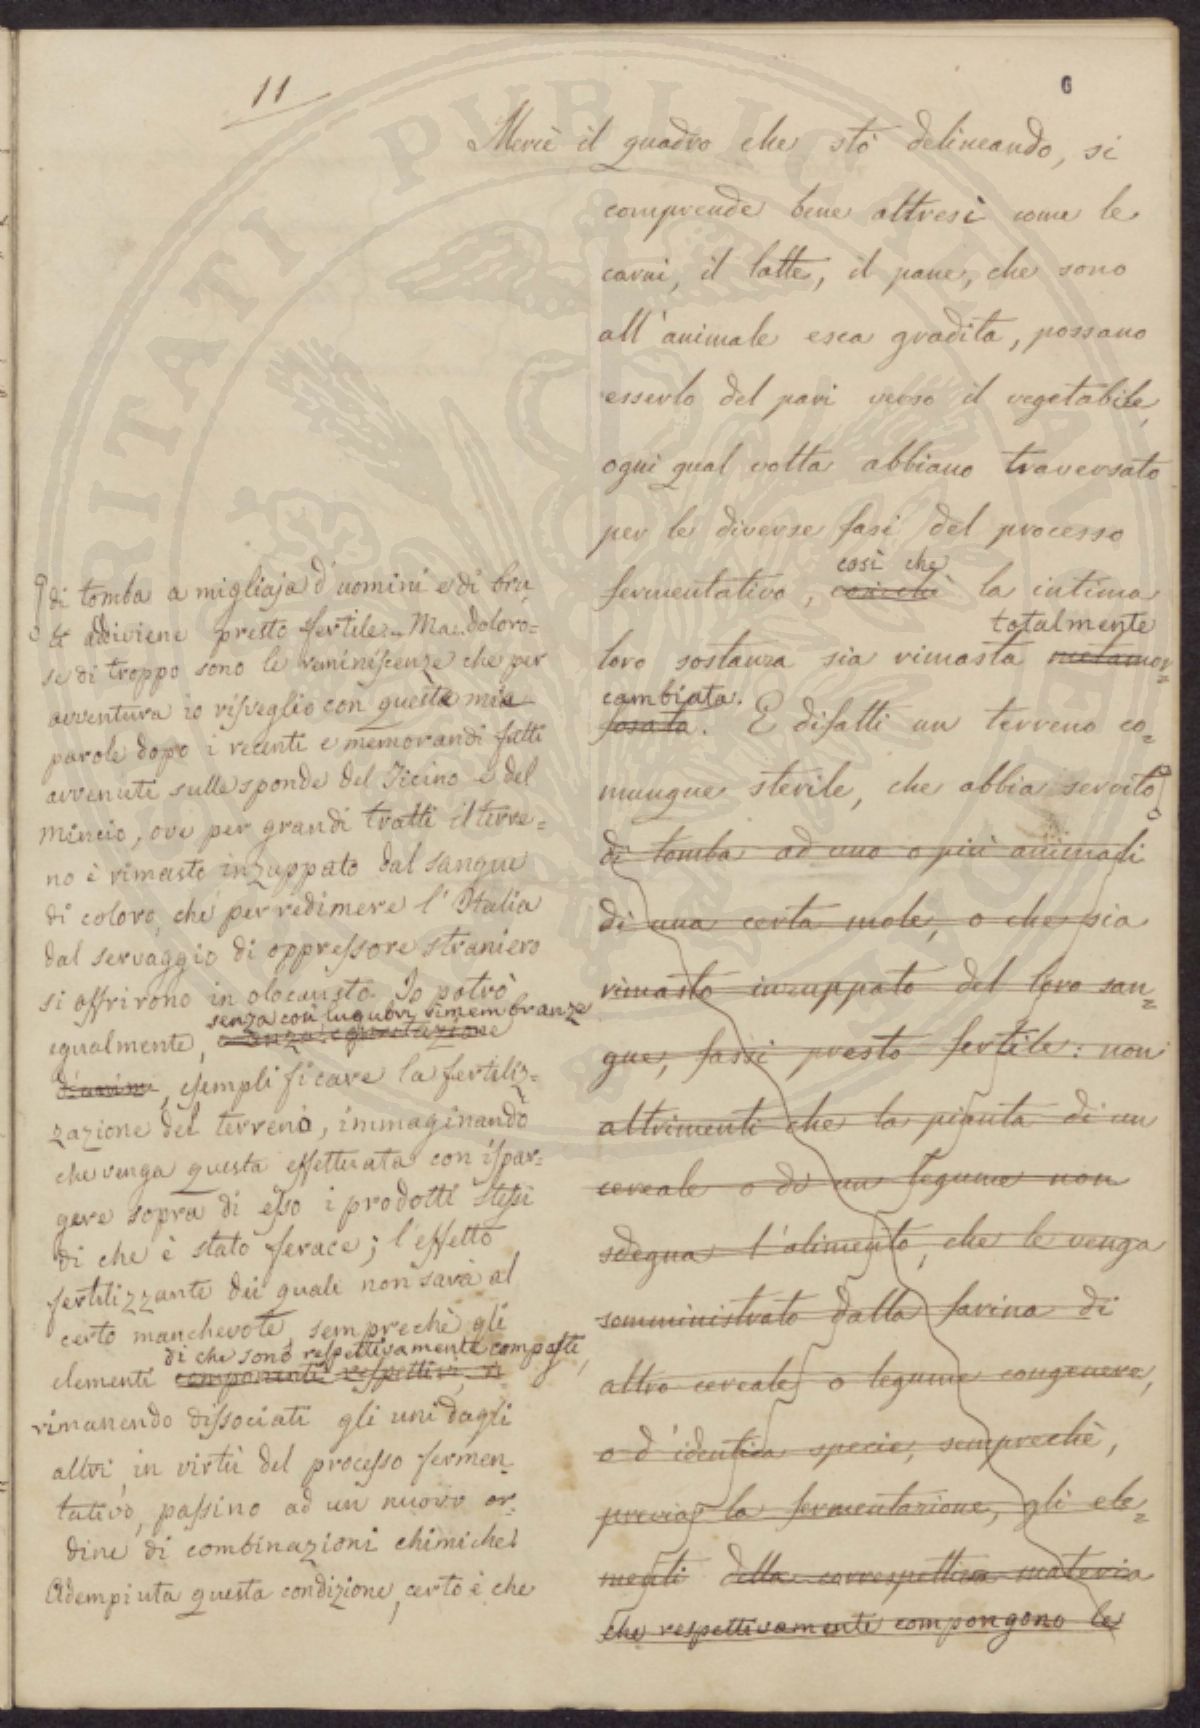 11
6
Mercè il quadro che stò delineando, si
comprende bene altresì come le
carni, il latte, il pane, che sono
all'animale esca gradita, possano
esserlo del pari verso il vegetabile,
ogni qual volta abbiano traversato
per le diverse fasi del processo
così che
fermentativo, cosicchè la intima
totalmente
loro sostanza sia rimasta metamor=
cambiata.
fosata. E difatti un terreno co=
munque sterile, che abbia servito
di tomba ad uno o più animali
di una certa mole, o che sia
rimasto inzuppato del loro san=
gue, fassi presto fertile: non
altrimenti che la pianta di un
cereale o di un legume non
sdegna l'alimento, che le venga
somministrato dalla farina di
altro cereale o legume congenere,
o d'identica specie, semprechè,
previa la fermentazione, gli ele=
menti della correspettiva materia
che respettivamente compongono le
di tomba a migliaja d'uomini e di bru
ti addiviene presto fertile... Ma.. doloro=
se di troppo sono le reminiscenze che per
avventura io risveglio con queste mie
parole dopo i recenti e memorandi fatti
avvenuti sulle sponde del Ticino e del
Mincio, ove per grandi tratti il terre=
no è rimasto inzuppato dal sangue
di coloro, che per redimere l'Italia
dal servaggio di oppressore straniero
si offrirono in olocausto. Io potrò
senza così lugubri rimembranze
egualmente,
d'animo, esemplificare la fertiliz=
zazione del terreno, immaginando
che venga questa effettuata con ispar=
gere sopra di esso i prodotti stessi
di che è stato ferace; l'effetto
fertilizzante dei quali non sarà al
certo manchevole, semprechè gli
di che sono respettivamente composti,
elementi componenti respettivi, si
rimanendo dissociati gli uni dagli
altri, in virtù del processo fermen=
tativo, passino ad un nuovo or=
dine di combinazioni chimiche.
Adempiuta questa condizione, certo è che
PVBLICAE